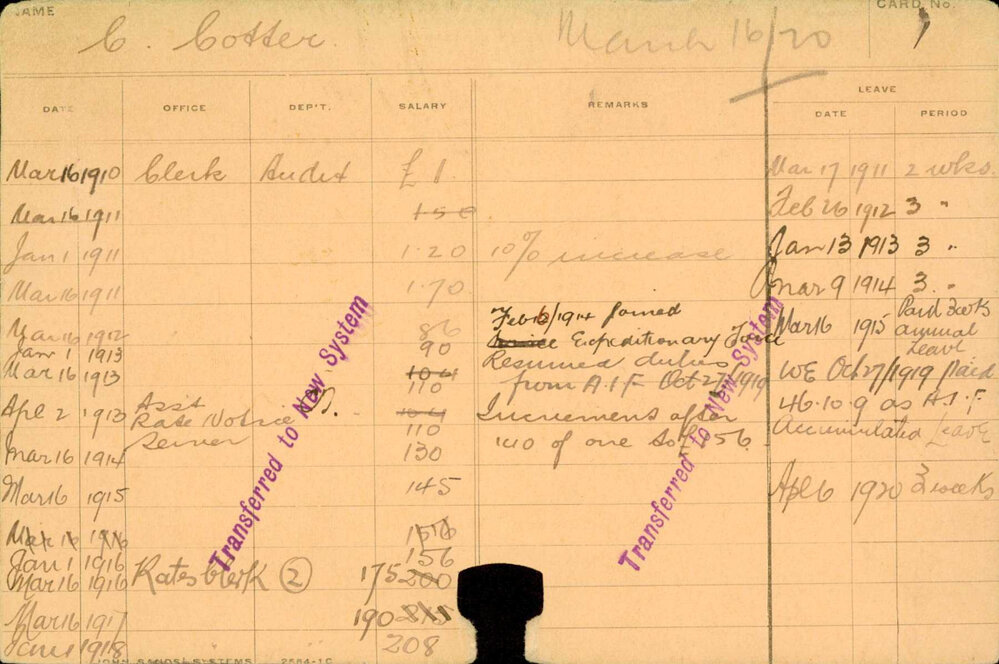 NAME
C. Cotter.
March 16/20
CARD No.
DATE OFFICE DEP'T. SALARY REMARKS LEAVE
DATE PERIOD
Mar 16 1910 Clerk Audit £1 Mar 17 1911 2 wks.
Mar 16 1911 150 Feb 26 1912 3 "
Jan 1 1911 1·20 10% increase Jan 13 1913 3 "
Mar 16 1911 1·70 Mar 9 1914 3 "
Mar 16 1912 86 Feb 1914 Joined Mar 16 1915 Paid 3 weeks annual Leave
Jan 1 1913 90 Expeditionary Force
Mar 16 1913 104 110 Resumed duties from A.I.F Oct 27/1919 WE Oct 27/1919 Paid
Apl 2 1913 Asst Rate Notice Server 104 110 Increment after 46.10.9 as A.I.F
Mar 16 1914 130 1110 of one to £156 Accumulated Leave
Mar 16 1915 145 Apl 6 1920 3 weeks
Mar 16 1916 156
Jan 1 1916 156
Mar 16 1916 Rates Clerk 2 175 200
Mar 16 1917 190
Jan 1 1918 208
Transferred to New System
Transferred to New System
JOHN SANDS: SYSTEMS 2564-10